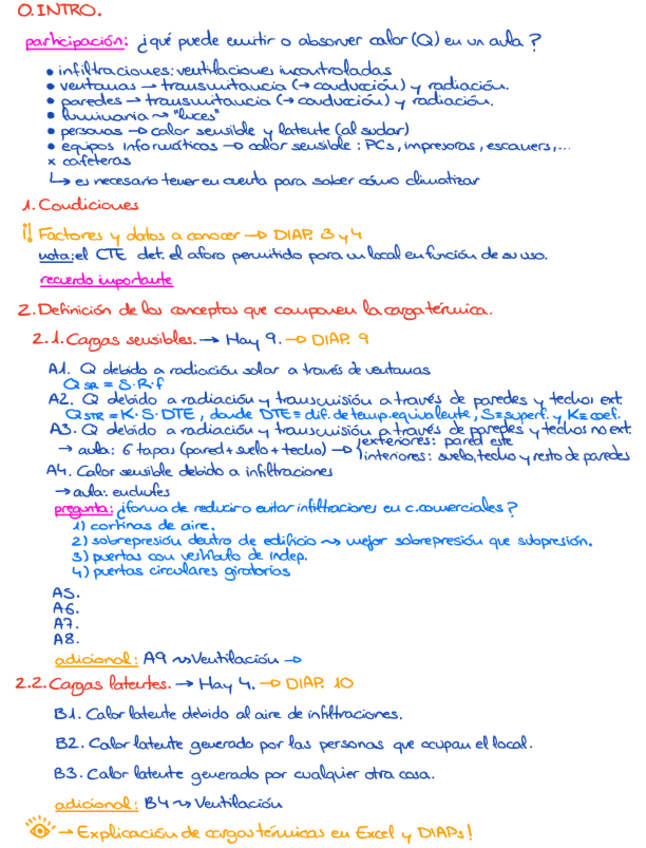 0. INTRO.
participación: ¿qué puede emitir o absorver calor (Q) en un aula?
• infiltraciones: ventilaciones incontroladas
• ventanas → transmitancia (→ conducción) y radiación.
• paredes → transmitancia (→ conducción) y radiación.
• luminaria ⇝ "luces"
• personas → calor sensible y latente (al sudar)
• equipos informáticos → calor sensible: PCs, impresoras, escaners,...
× cafeteras
↳ es necesario tener en cuenta para saber cómo climatizar
1. Condiciones
¡! Factores y datos a conocer → DIAP. 3 y 4
nota: el CTE det. el aforo permitido para un local en función de su uso.
recuerdo importante
2. Definición de los conceptos que componen la carga térmica.
2.1. Cargas sensibles. → Hay 9. → DIAP. 9
A1. Q debido a radiación solar a través de ventanas
Q SR = S·R·f
A2. Q debido a radiación y transmisión a través de paredes y techos ext.
Q STR = K·S·DTE, donde DTE = dif. de temp. equivalente, S = superf. y K = coef.
A3. Q debido a radiación y transmisión a través de paredes y techos no ext.
→ aula: 6 tapas (pared + suelo + techo) → exteriores: pared este
interiores: suelo, techo y resto de paredes
A4. Calor sensible debido a infiltraciones
→ aula: enchufes
pregunta: ¿forma de reducir o evitar infiltraciones en c. comerciales?
1) cortinas de aire.
2) sobrepresión dentro de edificio ⇝ mejor sobrepresión que subpresión.
3) puertas con vestíbulo de indep.
4) puertas circulares giratorias
A5.
A6.
A7.
A8.
adicional: A9 ⇝ Ventilación →
2.2. Cargas latentes. → Hay 4. → DIAP. 10
B1. Calor latente debido al aire de infiltraciones.
B2. Calor latente generado por las personas que ocupan el local.
B3. Calor latente generado por cualquier otra cosa.
adicional: B4 ⇝ Ventilación
→ Explicación de cargas térmicas en Excel y DIAPs!